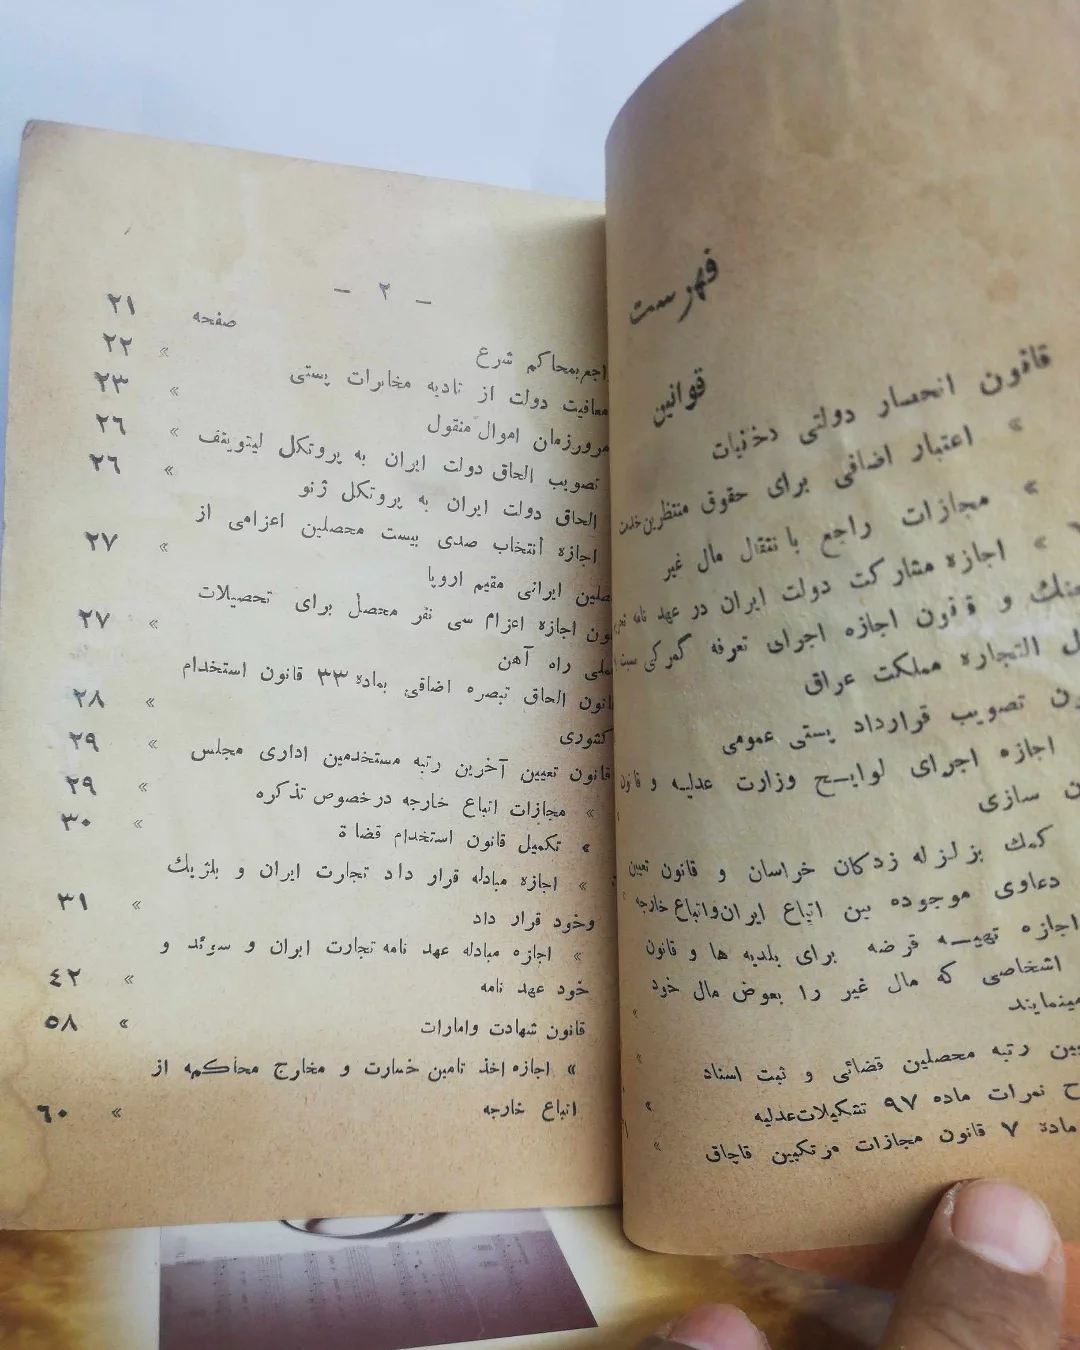 فهرست
قوانین
قانون انحصار دولتی دخانیات
» اعتبار اضافی برای حقوق منتظرین خدمت
» مجازات راجع بانتقال مال غیر
» اجازه مشارکت دولت ایران در عهد نامه
و قانون اجازه اجرای تعرفه گمرکی
التجاره مملکت عراق
تصویب قرارداد پستی عمومی
اجازه اجرای لوایح وزارت عدلیه و قانون
سازی
کمک بزلزله زدکان خراسان و قانون تعیین
دعاوی موجوده بین اتباع ایران واتباع خارجه
اجازه تهیه قرضه برای بلدیه ها و قانون
اشخاصی که مال غیر را بعوض مال خود
مینمایند
رتبه محصلین قضائی و ثبت اسناد
نمرات ماده ۹۷ تشکیلات عدلیه
ماده ۷ قانون مجازات مرتکبین قاچاق
– ۲ –
صفحه ۲۱
راجع بمحاکم شرع
» ۲۲
معافیت دولت از تادیه مخابرات پستی
» ۲۳
مرورزمان اموال منقول
» ۲۶
تصویب الحاق دولت ایران به پروتکل لیتوینف
» ۲۶
الحاق دولت ایران به پروتکل ژنو
اجازه انتخاب صدی بیست محصلین اعزامی از
ایرانی مقیم اروپا » ۲۷
اجازه اعزام سی نفر محصل برای تحصیلات
راه آهن » ۲۷
قانون الحاق تبصره اضافی بماده ۳۳ قانون استخدام
کشوری » ۲۸
قانون تعیین آخرین رتبه مستخدمین اداری مجلس » ۲۹
» مجازات اتباع خارجه درخصوص تذکره » ۲۹
» تکمیل قانون استخدام قضاة » ۳۰
» اجازه مبادله قرار داد تجارت ایران و بلژیک
وخود قرار داد » ۳۱
» اجازه مبادله عهد نامه تجارت ایران و سوئد و
خود عهد نامه » ۴۲
قانون شهادت وامارات » ۵۸
» اجازه اخذ تامین خسارت و مخارج محاکمه از
اتباع خارجه » ۶۰